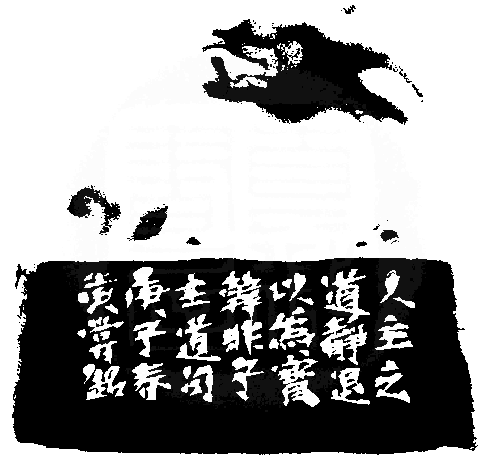 人主之
道靜退
以為寶
韓非子
主道句
庚子春
黃嘗銘